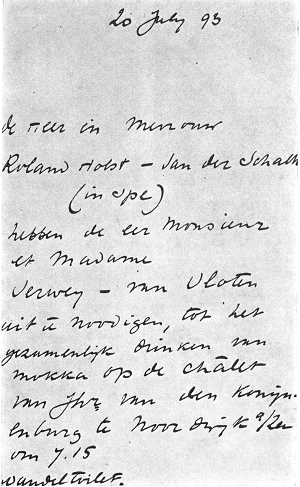 20 July 93
de Heer en Mevrouw
Roland Holst – van der Schalk
(in spe)
hebben de eer Monsieur
et Madame
Verwey – van Vloten
uit te noodigen, tot het
gezamenlijk drinken van
mokka op de châlet
van Jhr van den Konijn-
enburg te Noordwijk a/Zee
om 7.15
wandeltoilet.